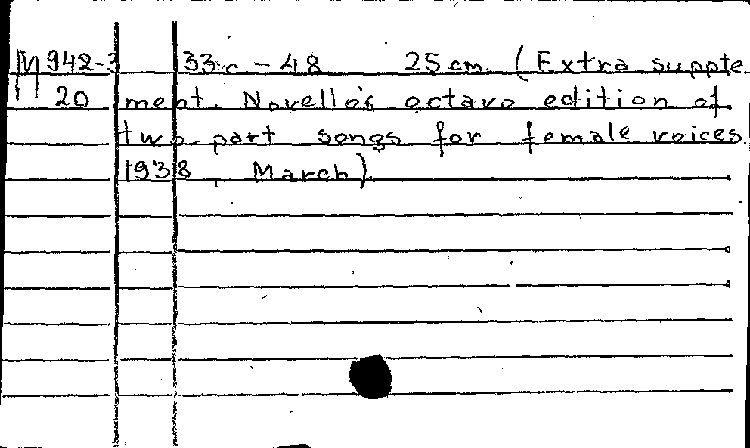 M942-3 33 c - 48 25 cm. (Extra supple
20 ment. Novello's octavo edition of
two part songs for female voices.
1938, March).